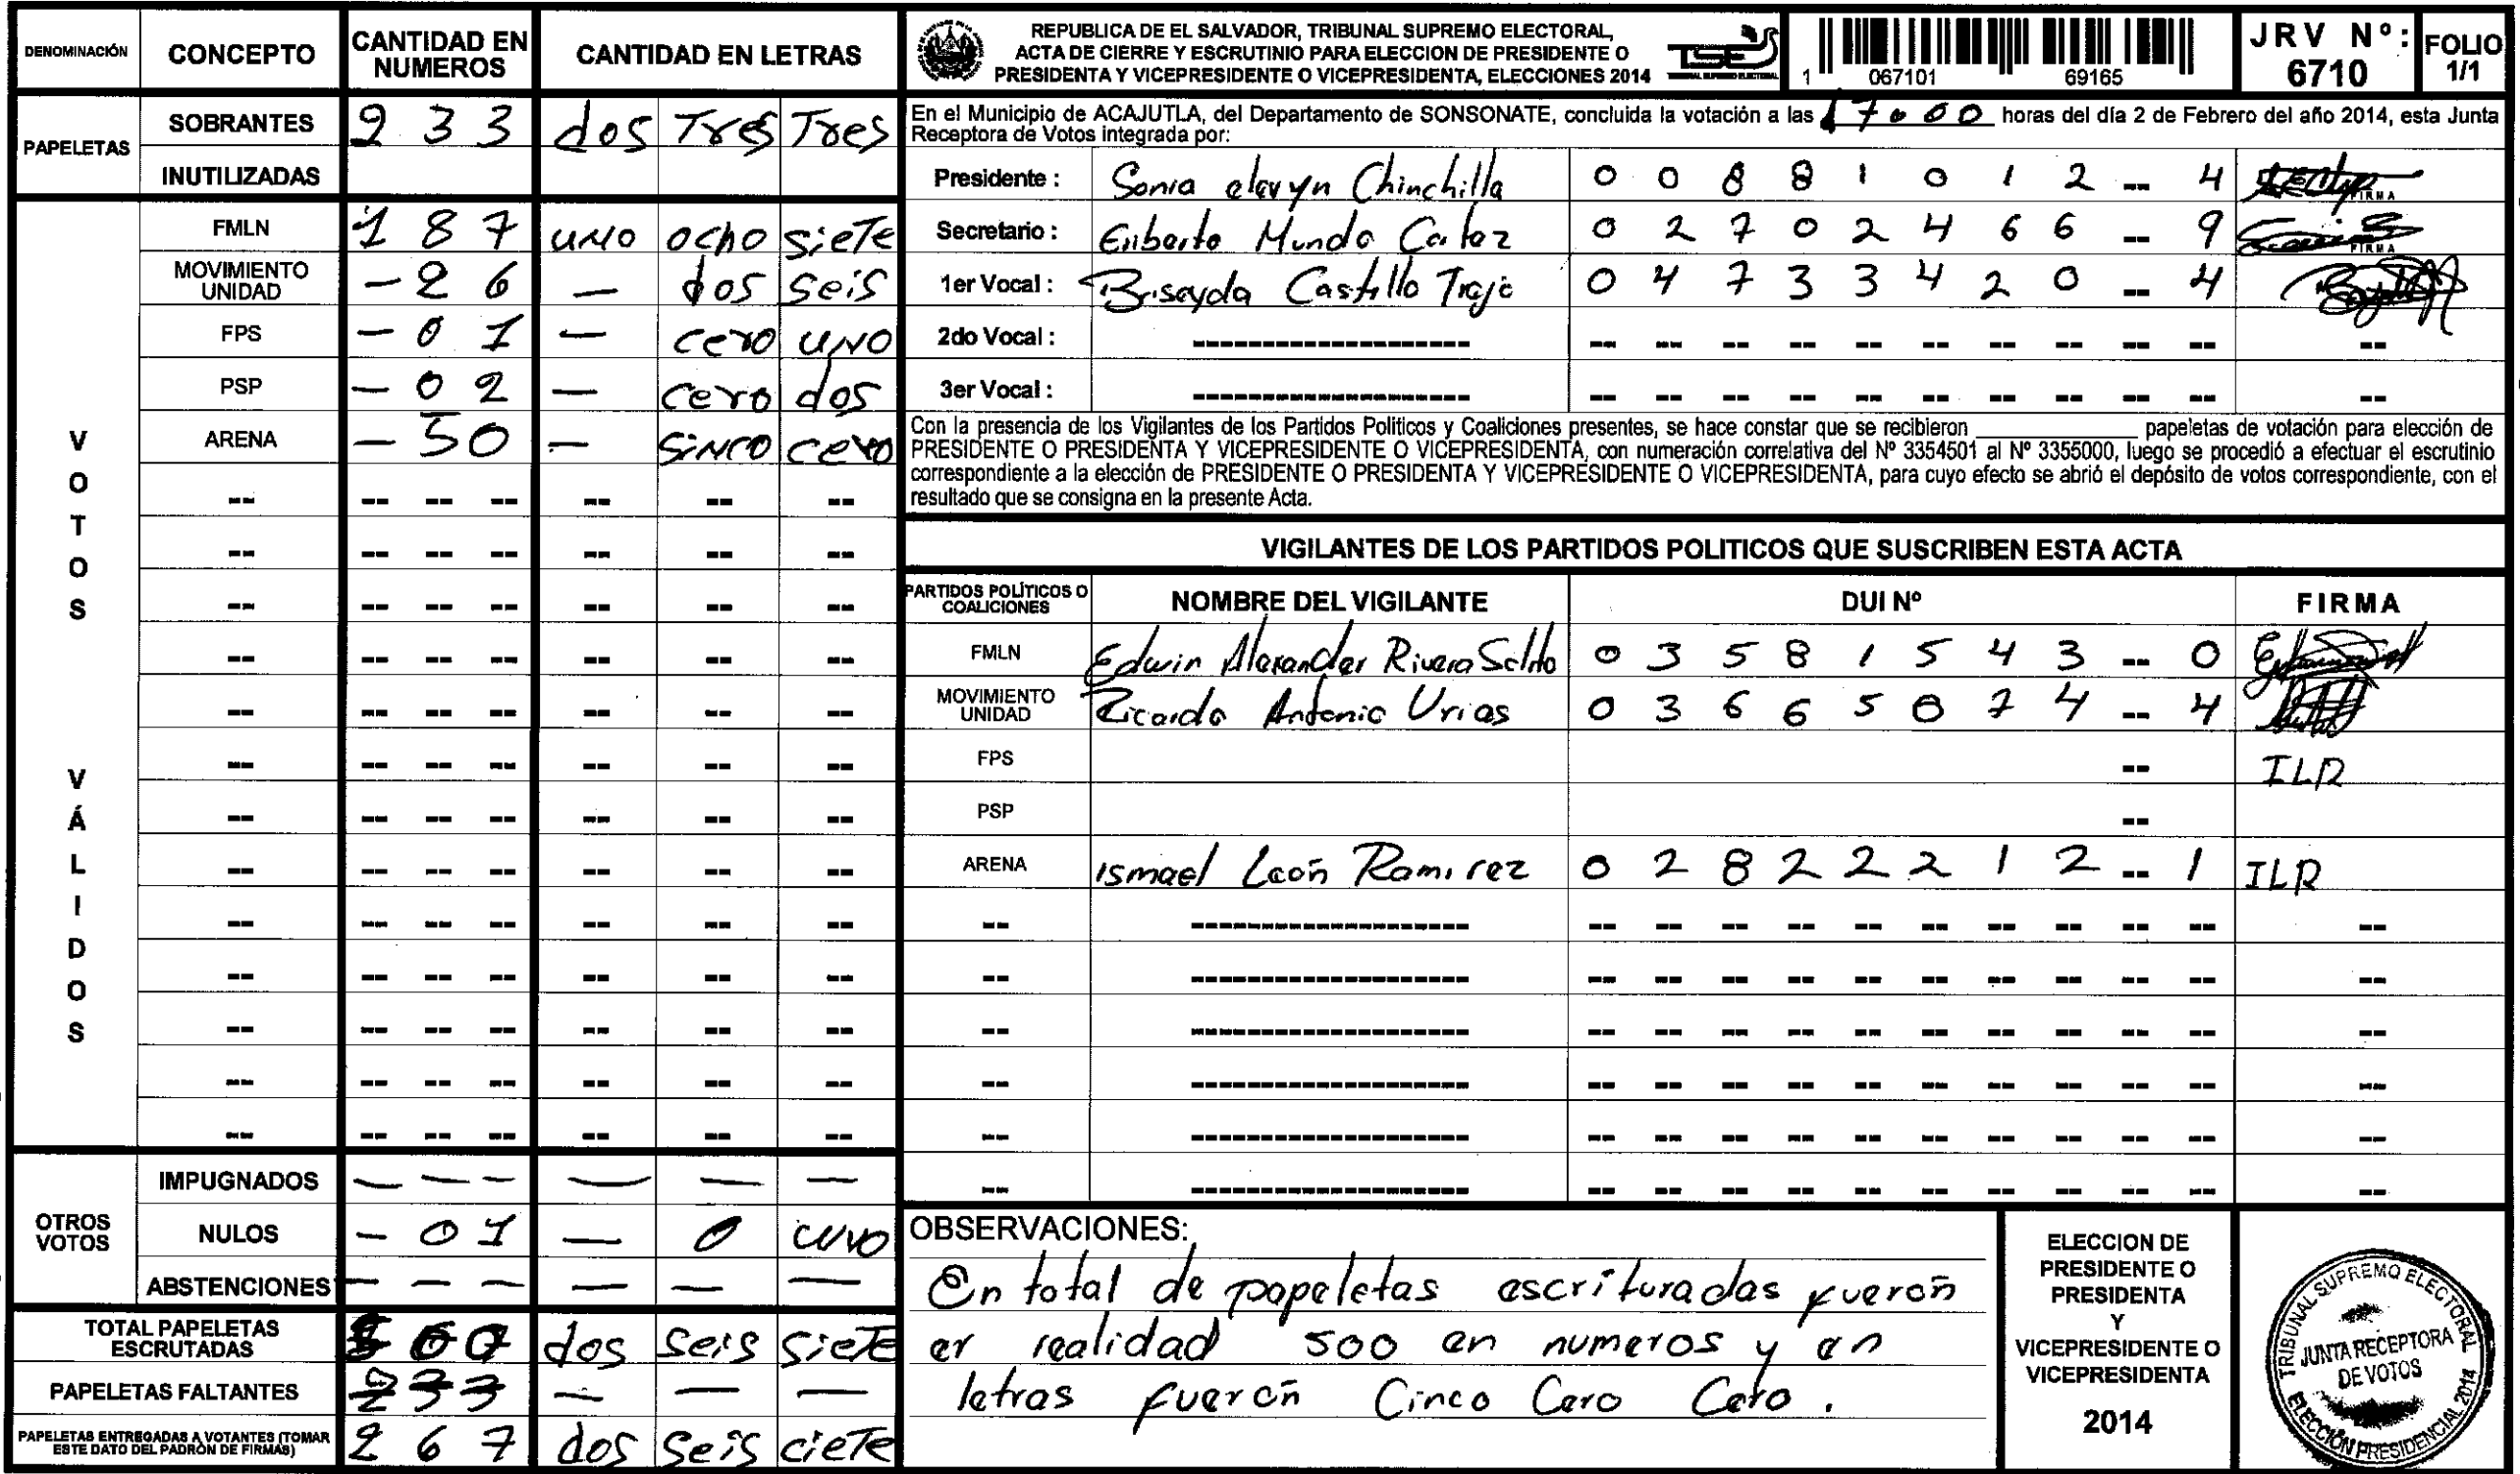 DENOMINACIÓN CONCEPTO CANTIDAD EN NUMEROS CANTIDAD EN LETRAS
PAPELETAS
SOBRANTES 2 3 3 dos Tres Tres
INUTILIZADAS
VOTOS VÁLIDOS
FMLN 1 8 7 uno ocho siete
MOVIMIENTO UNIDAD - 2 6 - dos seis
FPS - 0 1 - cero uno
PSP - 0 2 - cero dos
ARENA - 5 0 - sinco cero
OTROS VOTOS
IMPUGNADOS - - - - - -
NULOS - 0 1 - 0 uno
ABSTENCIONES - - - - - -
TOTAL PAPELETAS ESCRUTADAS dos seis siete
PAPELETAS FALTANTES 233 - - -
PAPELETAS ENTREGADAS A VOTANTES (TOMAR ESTE DATO DEL PADRÓN DE FIRMAS) 2 6 7 dos seis ciete
REPUBLICA DE EL SALVADOR, TRIBUNAL SUPREMO ELECTORAL,
ACTA DE CIERRE Y ESCRUTINIO PARA ELECCION DE PRESIDENTE O
PRESIDENTA Y VICEPRESIDENTE O VICEPRESIDENTA, ELECCIONES 2014
TSE
TRIBUNAL SUPREMO ELECTORAL
1 067101 69165
JRV Nº: 6710
FOLIO 1/1
En el Municipio de ACAJUTLA, del Departamento de SONSONATE, concluida la votación a las 17:00 horas del día 2 de Febrero del año 2014, esta Junta
Receptora de Votos integrada por:
Presidente : Sonia Chinchilla 0 0 8 8 1 0 1 2 -- 4 FIRMA
Secretario : Eriberto Munda 0 2 7 0 2 4 6 6 -- 9 FIRMA
1er Vocal : Briseyda Castillo Trejo 0 4 7 3 3 4 2 0 -- 4
2do Vocal :
3er Vocal :
Con la presencia de los Vigilantes de los Partidos Politicos y Coaliciones presentes, se hace constar que se recibieron ________ papeletas de votación para elección de
PRESIDENTE O PRESIDENTA Y VICEPRESIDENTE O VICEPRESIDENTA, con numeración correlativa del Nº 3354501 al Nº 3355000, luego se procedió a efectuar el escrutinio
correspondiente a la elección de PRESIDENTE O PRESIDENTA Y VICEPRESIDENTE O VICEPRESIDENTA, para cuyo efecto se abrió el depósito de votos correspondiente, con el
resultado que se consigna en la presente Acta.
VIGILANTES DE LOS PARTIDOS POLITICOS QUE SUSCRIBEN ESTA ACTA
PARTIDOS POLÍTICOS O COALICIONES NOMBRE DEL VIGILANTE DUI Nº FIRMA
FMLN Edwin Alexander Rivera 0 3 5 8 1 5 4 3 -- 0
MOVIMIENTO UNIDAD Ricardo Antonio Urias 0 3 6 6 5 0 7 4 -- 4
FPS -- ILR
PSP --
ARENA Ismael León Ramirez 0 2 8 2 2 2 1 2 -- 1 ILR
OBSERVACIONES:
En total de papeletas escrituradas fueron
er realidad 500 en numeros y en
letras fueron Cinco Cero Cero.
ELECCION DE
PRESIDENTE O
PRESIDENTA
Y
VICEPRESIDENTE O
VICEPRESIDENTA
2014
TRIBUNAL SUPREMO ELECTORAL
JUNTA RECEPTORA
DE VOTOS
ELECCIÓN PRESIDENCIAL 2014